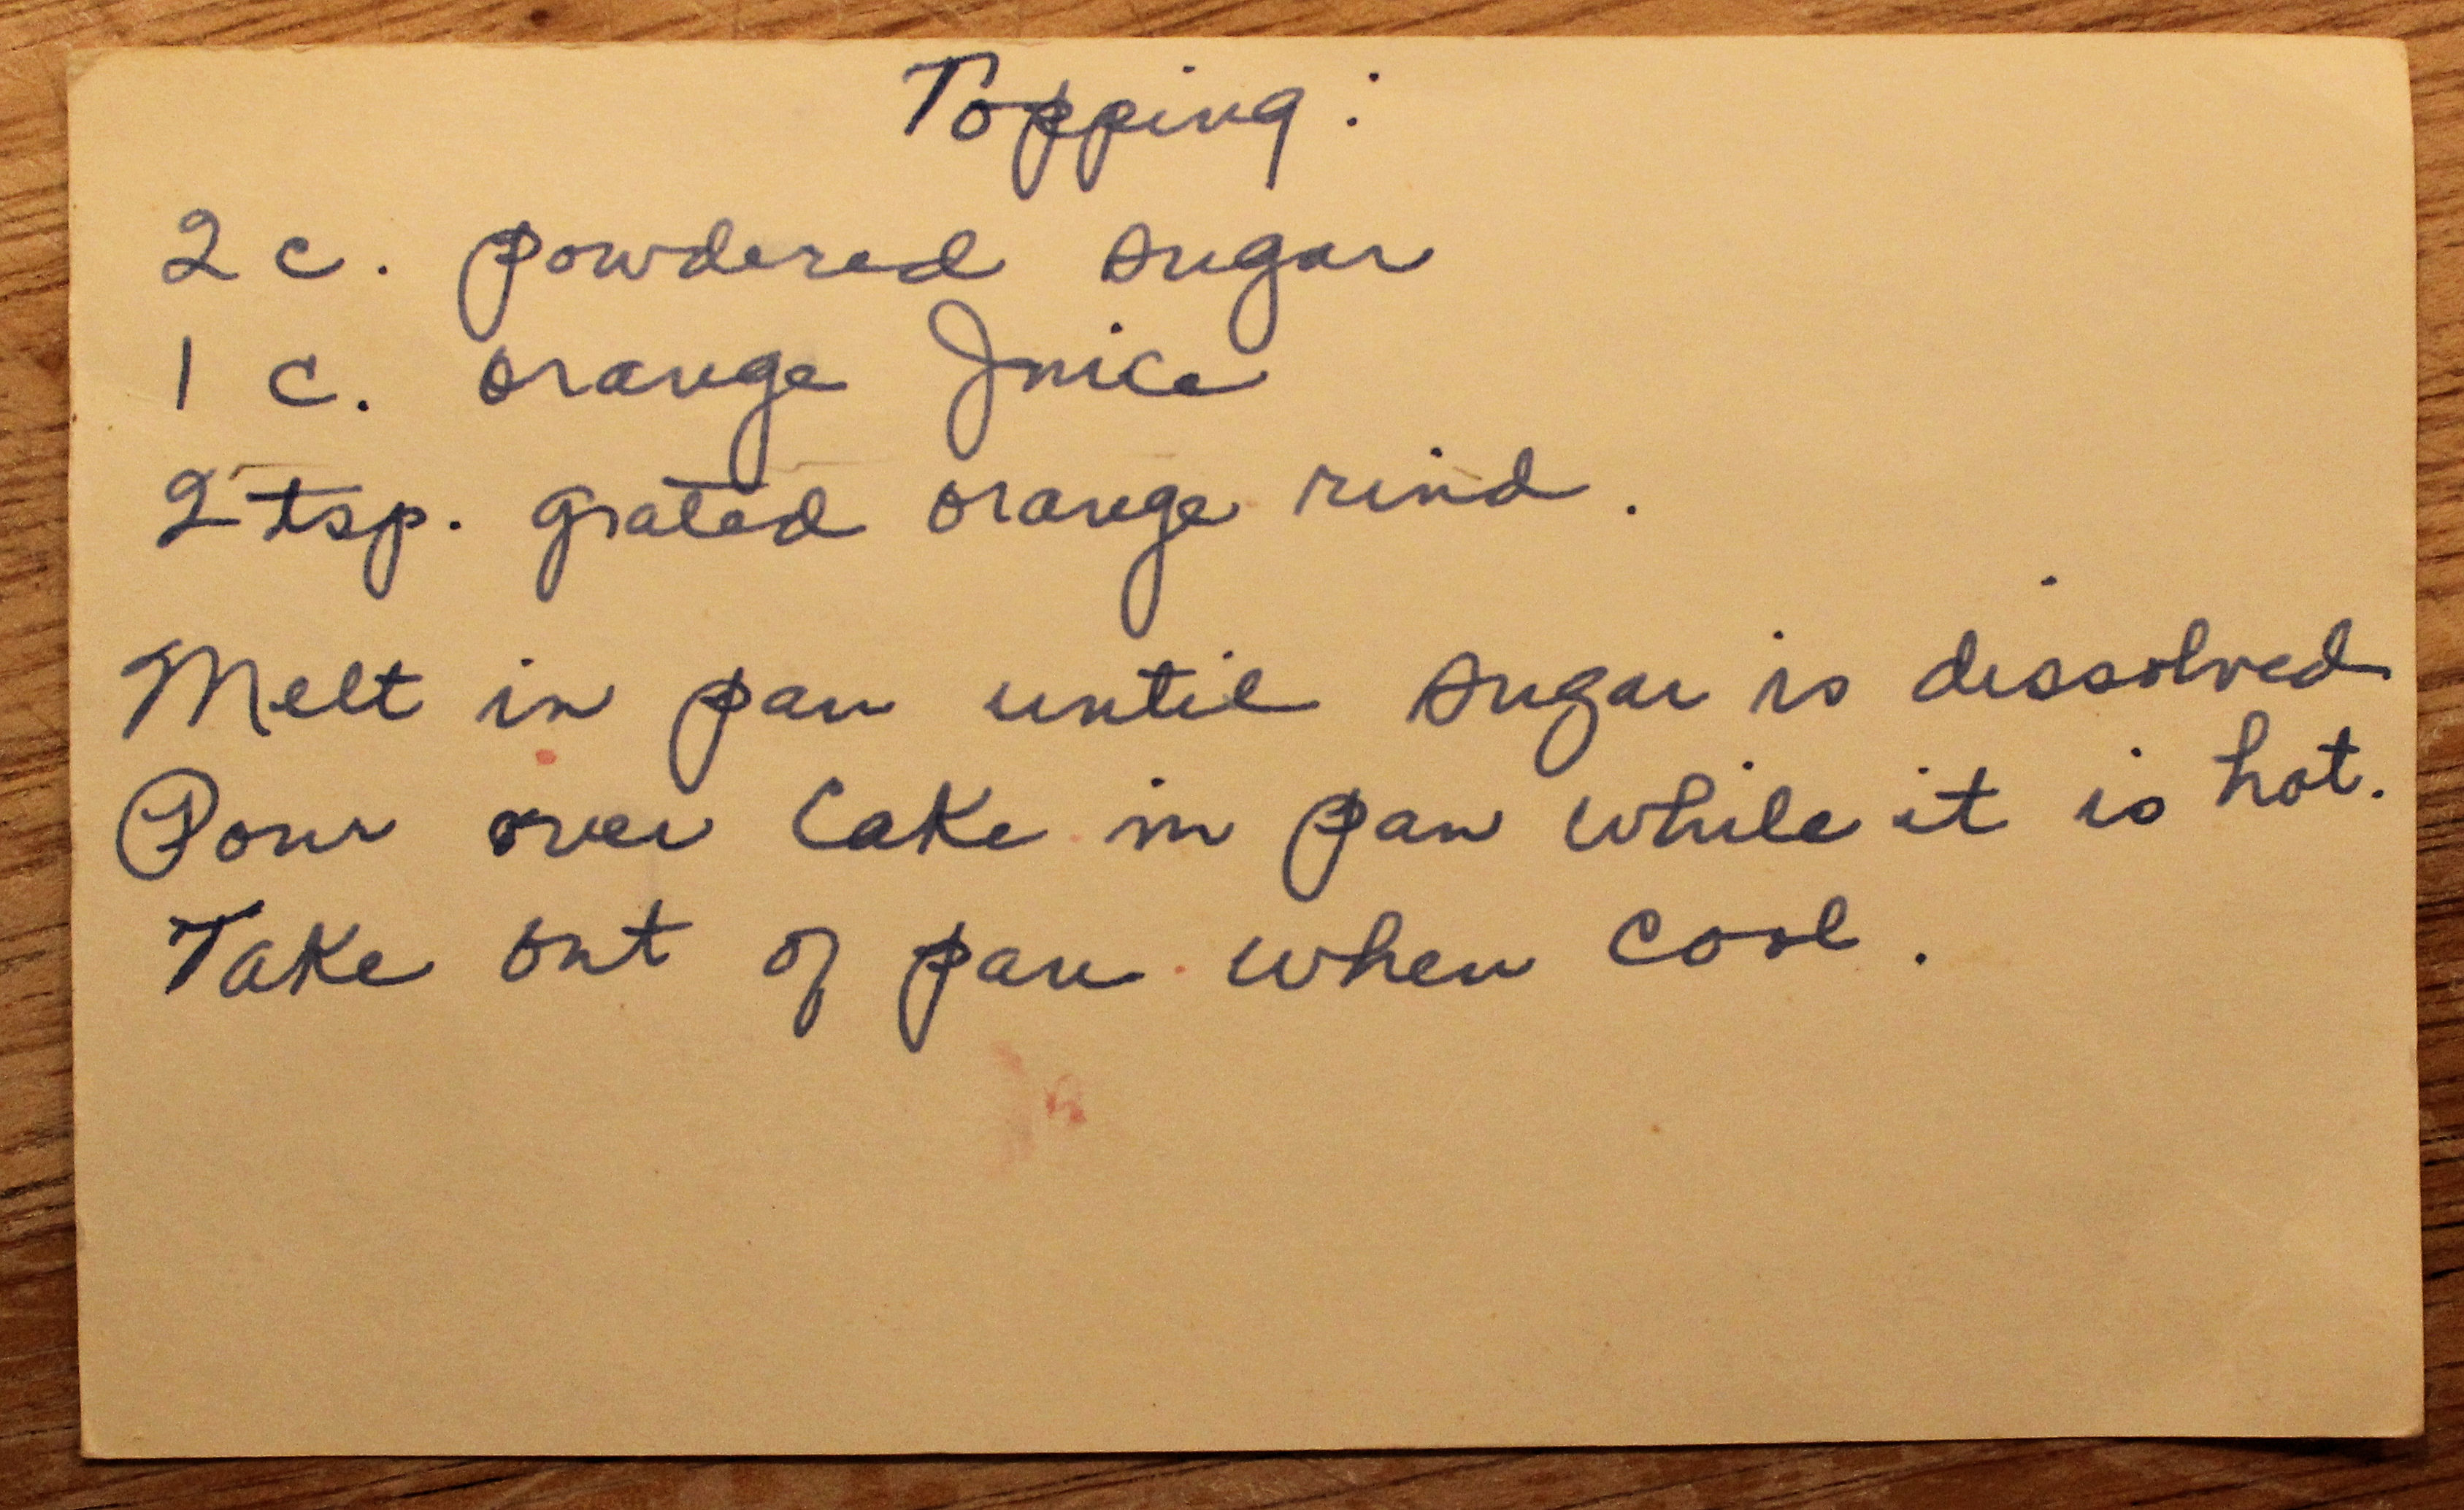 Topping:
2 c. powdered sugar
1 c. orange Juice
2 tsp. grated orange rind.
Melt in pan until sugar is dissolved
Pour over Cake in pan while it is hot.
Take out of pan when cool.